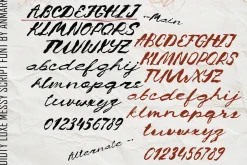 ABCDEFGHIJ
KLMNOPQRS
TUVWXYZ
abcdefghij
klmnopqrs
tuvwxyz
0123456789
-Main
ABCDEFGHIJ
KLMNOPQRS
TUVWXYZ
abcdefghij
klmnopqrs
tuvwxyz
0123456789
Alternate
LUXE MESSY SCRIPT FONT BY